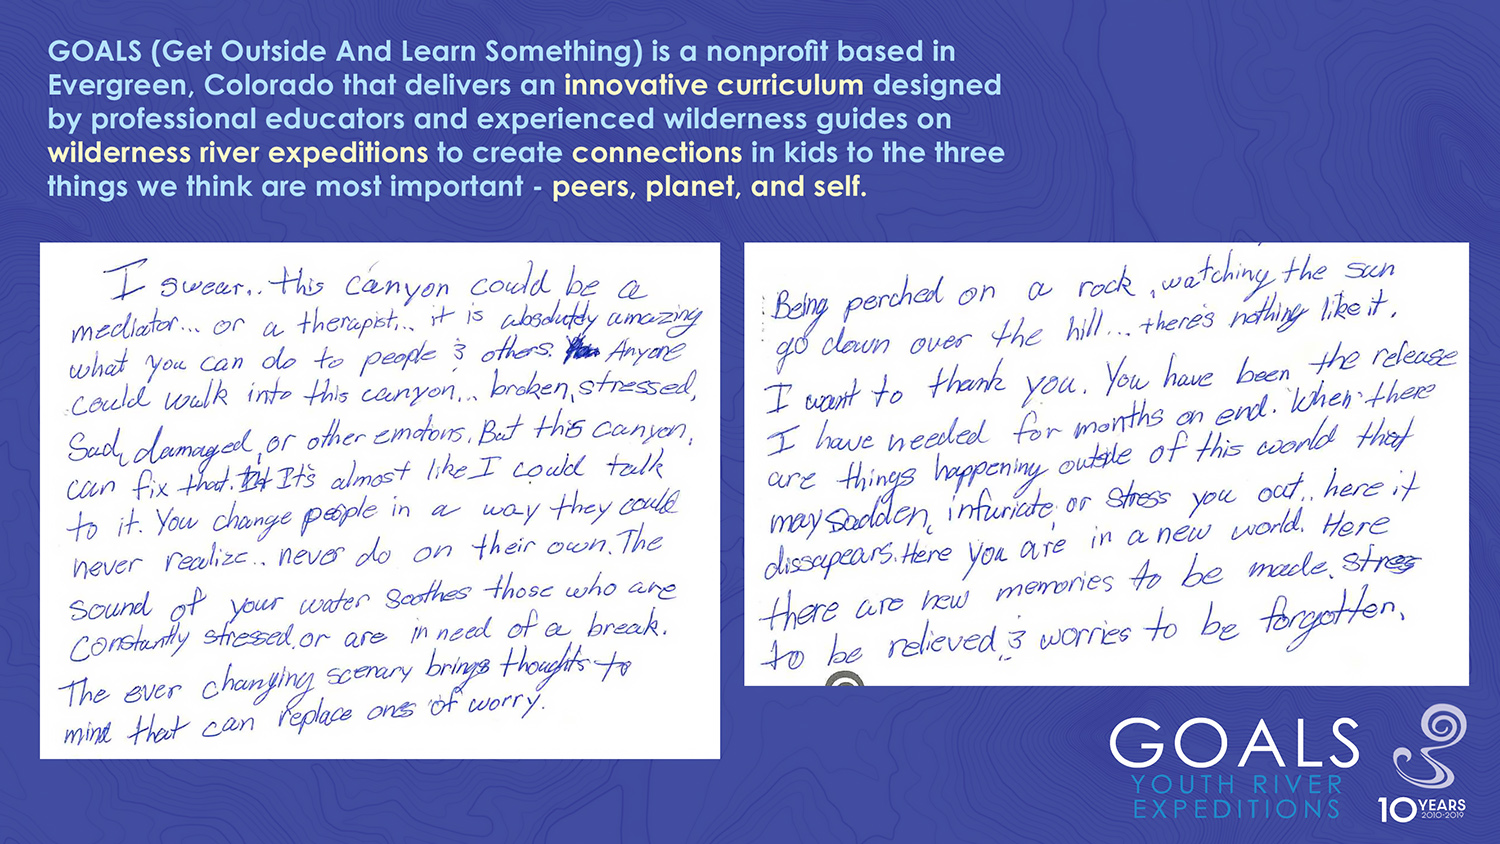 GOALS (Get Outside And Learn Something) is a nonprofit based in
Evergreen, Colorado that delivers an innovative curriculum designed
by professional educators and experienced wilderness guides on
wilderness river expeditions to create connections in kids to the three
things we think are most important - peers, planet, and self.
I swear.. this canyon could be a
mediator... or a therapist... it is absolutely amazing
what you can do to people & others. You Anyone
could walk into this canyon... broken, stressed,
Sad, damaged, or other emotions. But this canyon,
can fix that. It It's almost like I could talk
to it. You change people in a way they could
never realize.. never do on their own. The
sound of your water soothes those who are
constantly stressed, or are in need of a break.
The ever changing scenary brings thoughts to
mind that can replace ones of worry.
Being perched on a rock, watching the sun
go down over the hill... there's nothing like it.
I want to thank you. You have been the release
I have needed for months on end. When there
are things happening outside of this world that
may sadden, infuriate, or stress you out.. here it
dissapears. Here you are in a new world. Here
there are new memories to be made, stress
to be relieved, & worries to be forgotten.
GOALS
YOUTH RIVER
EXPEDITIONS
10 YEARS
2010-2019